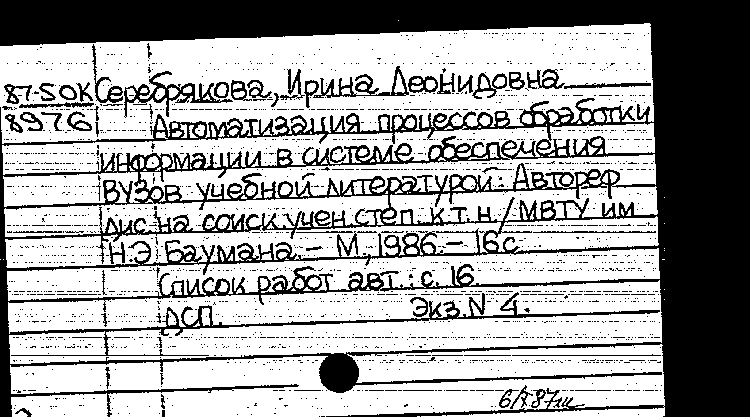 87-50К Серебрякова, Ирина Леонидовна
8976 Автоматизация процессов обработки
информации в системе обеспечения
ВУЗов учебной литературой: Автореф
дис. на соиск. учен. степ. к.т.н. / МВТУ им
Н.Э. Баумана. - М., 1986. - 16 с.
Список работ авт.: с. 16.
ДСП. Экз. N 4.